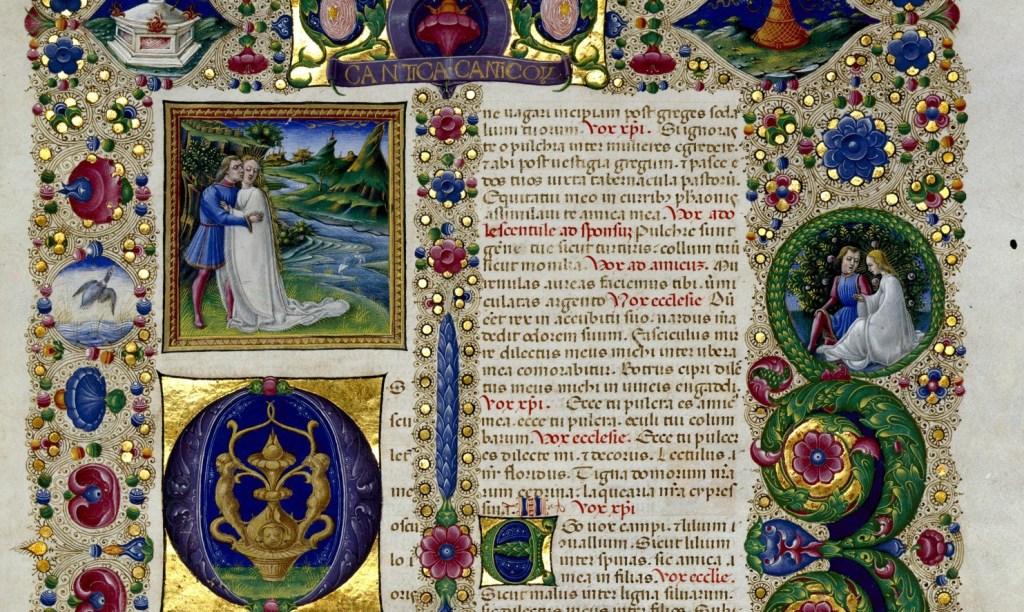 CANTICA CANTICOV
S
scu
lef
me
oscu
lo i
oris
ne uagari incipiam post greges soda
lium tuorum. Vox xpi. Si ignoras
te o pulchra inter mulieres egredere.
⁊ abi post uestigia gregum. ⁊ pasce e
dos tuos iuxta tabernacula pastorū.
Equitatui meo in curribus pharaonis
assimilaui te amica mea. Vox ado
lescentule ad sponsū Pulchre sunt
gene tue sicut turturis. collum tuū
sicut monilia. Vox ad amicus. Mu
renulas aureas faciemus tibi. ūmi
culatas argento Vox ecclesie Dū
eēt rex in accubitu suo. nardus mā
redit odorem suum. Fasciculus mir
re dilectus meus michi inter ubera
mea comorabitur. Botrus cipri dilec
tus meus michi in uineis engaddi.
Vox xpi. Ecce tu pulcra es amica
mea. ecce tu pulcra. oculi tui colum
barum Vox ecclesie. Ecce tu pulcer
es dilecte mi. ⁊ decorus. Lectulus n̄r
floridus. Tigna domorum nr̄a
rum cedrina: laquearia nr̄a cypres
sina. II Vox xpi
Ego uox campi. ⁊ lilium
uallium. Sicut lilium
inter spinas. sic amica
mea in filias. Vox ecclie.
Sicut malus inter ligna siluarum.
sic dilectus meus inter filios. Sub